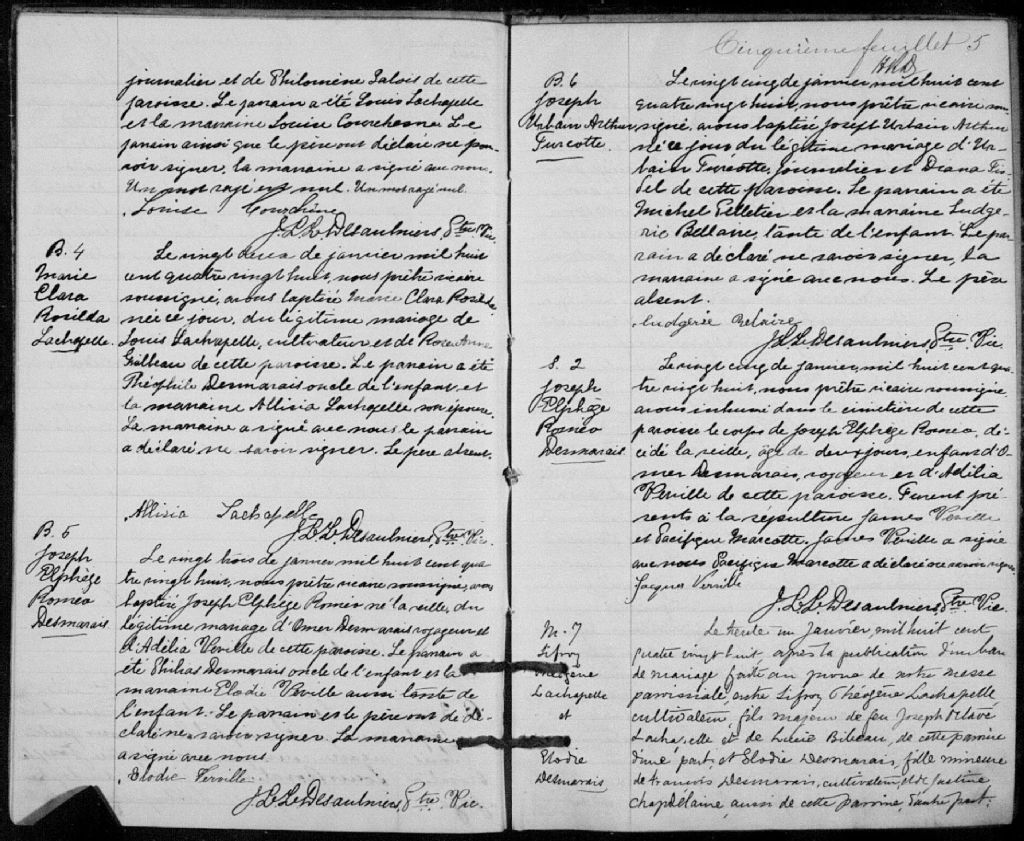 journalier et de Philomène Salois de cette
paroisse. Le parrain a été Louis Lachapelle
et la marraine Louise Courchesne. Le
parrain ainsi que le père ont déclaré ne pou-
voir signer, la marraine a signé avec nous.
Un mot rayé est nul. Un mot rayé nul.
Louise Courchène
J.L.L. Desaulniers, Ptre Vic.
B. 4
Marie
Clara
Rosilda
Lachapelle.
Le vingt deux de janvier mil huit
cent quatre vingt huit, nous prêtre vicaire
soussigné, avons baptisé Marie Clara Rosilda
née ce jour, du légitime mariage de
Louis Lachapelle, cultivateur et de Rose Anna
de cette paroisse. Le parrain a été
Théophile Desmarais oncle de l'enfant, et
la marraine Allisia Lachapelle, son épouse.
La marraine a signé avec nous le parrain
a déclaré ne savoir signer. Le père absent.
Allisia Lachapelle
J.L.L. Desaulniers, Ptre Vic.
B. 5
Joseph
Elphège
Roméo
Desmarais.
Le vingt trois de janvier mil huit cent qua
tre vingt huit, nous prêtre vicaire soussigné, avons
baptisé Joseph Elphège Roméo né la veille, du
légitime mariage d'Omer Desmarais voyageur et
d'Adélia Verville de cette paroisse. Le parrain a
été Philias Desmarais oncle de l'enfant et la
marraine Elodie Verville aussi tante de
l'enfant. Le parrain et le père ont dé-
claré ne savoir signer. La marraine
a signé avec nous.
Elodie Verville
J.L.L. Desaulniers, Ptre Vic.
Cinquième feuillet 5
B. 6
Joseph
Urbain Arthur
Turcotte.
Le vingt cinq de janvier mil huit cent
quatre vingt huit, nous prêtre vicaire sous
signé, avons baptisé Joseph Urbain Arthur
né ce jour du légitime mariage d'Ur-
bain Turcotte, journalier et Diana
de cette paroisse. Le parrain a été
Michel Pelletier et la marraine Ludge-
rie Bellaire, tante de l'enfant. Le par-
rain a déclaré ne savoir signer, la
marraine a signé avec nous. Le père
absent.
Ludgérie Belaire
J.L.L. Desaulniers Ptre Vic.
S. 2
Joseph
Elphège
Roméo
Desmarais
Le vingt cinq de janvier, mil huit cent qua
tre vingt huit, nous prêtre vicaire soussigné,
avons inhumé dans le cimetière de cette
paroisse le corps de Joseph Elphège Roméo, dé-
cédé la veille, âgé de deux jours, enfant d'O-
mer Desmarais, voyageur et d'Adélia
Verville de cette paroisse. Furent pré-
sents à la sépulture James Verville
et Pacifique Marcotte. James Verville a signé
avec nous Pacifique Marcotte a déclaré ne savoir signer.
Jacques Verville
J.L.L. Desaulniers Ptre Vic.
M. 7
Sifroy
Théogène
Lachapelle
et
Elodie
Desmarais
Le trente un Janvier, mil huit cent
quatre vingt huit, après la publication d'un ban
de mariage faite au prône de notre messe
paroissiale, entre Sifroy Théogène Lachapelle
cultivateur, fils majeur de feu Joseph Octave
Lachapelle et de Lucie Bibeau, de cette paroisse
d'une part, et Elodie Desmarais, fille mineure
de francois Desmarais, cultivateur, et de Justine
Chapdelaine, aussi de cette paroisse, d'autre part;